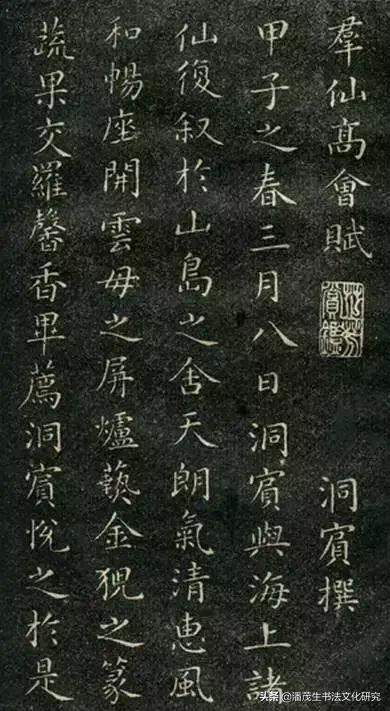 羣仙高會賦 洞賓撰
甲子之春三月八日洞賓與海上諸
仙復叙於山島之舍天朗氣清惠風
和暢座開雲母之屏爐爇金猊之篆
蔬果交羅馨香畢薦洞賓悅之於是
头条 @潘茂生书法文化研究